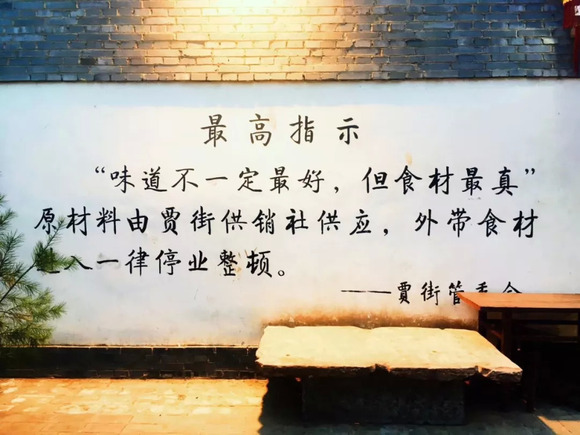 最高指示
“味道不一定最好，但食材最真”
原材料由贾街供销社供应，外带食材
入一律停业整顿。
——贾街管委会